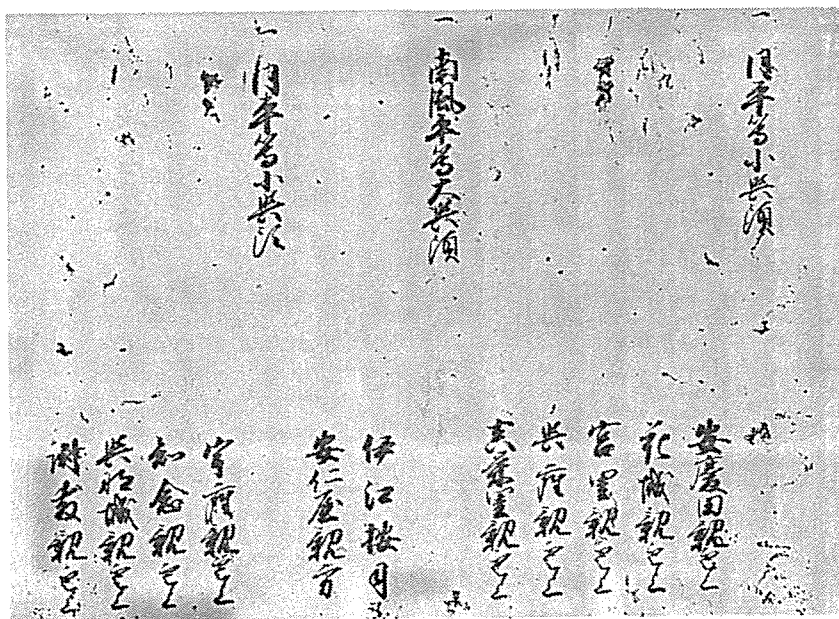 一 同平等小與頭
安慶田親雲上
花城親雲上
宮里親雲上
與座親雲上
真栄里親雲上
一 南風平等大與頭
伊江按司
安仁屋親方
一 同平等小與頭
宇座親雲上
知念親雲上
與那城親雲上
謝敷親雲上